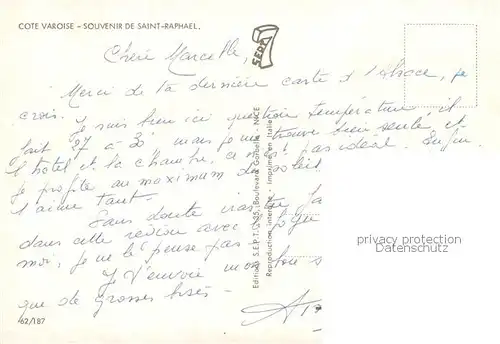 COTE VAROISE - SOUVENIR DE SAINT-RAPHAEL.
SEPT
Chère Marcelle,
Merci de la dernière carte d'Alsace, je
crois. Je suis bien ici question température, il
fait 27 à 30° mais je me trouve bien seule et
l'hotel et la chambre, ce n'est pas idéal. Enfin
je profite au maximum du soleil
l'aime tant.
Sans doute
dans cette région avec
moi, je ne le pense pas
Je t'envoie mon bon s
que de grosses bises -
62/187
Editions S.E.P.T. 35, Boulevard Gorbella - NICE
Reproduction interdite - Imprimé en Italie
privacy protection
Datenschutz